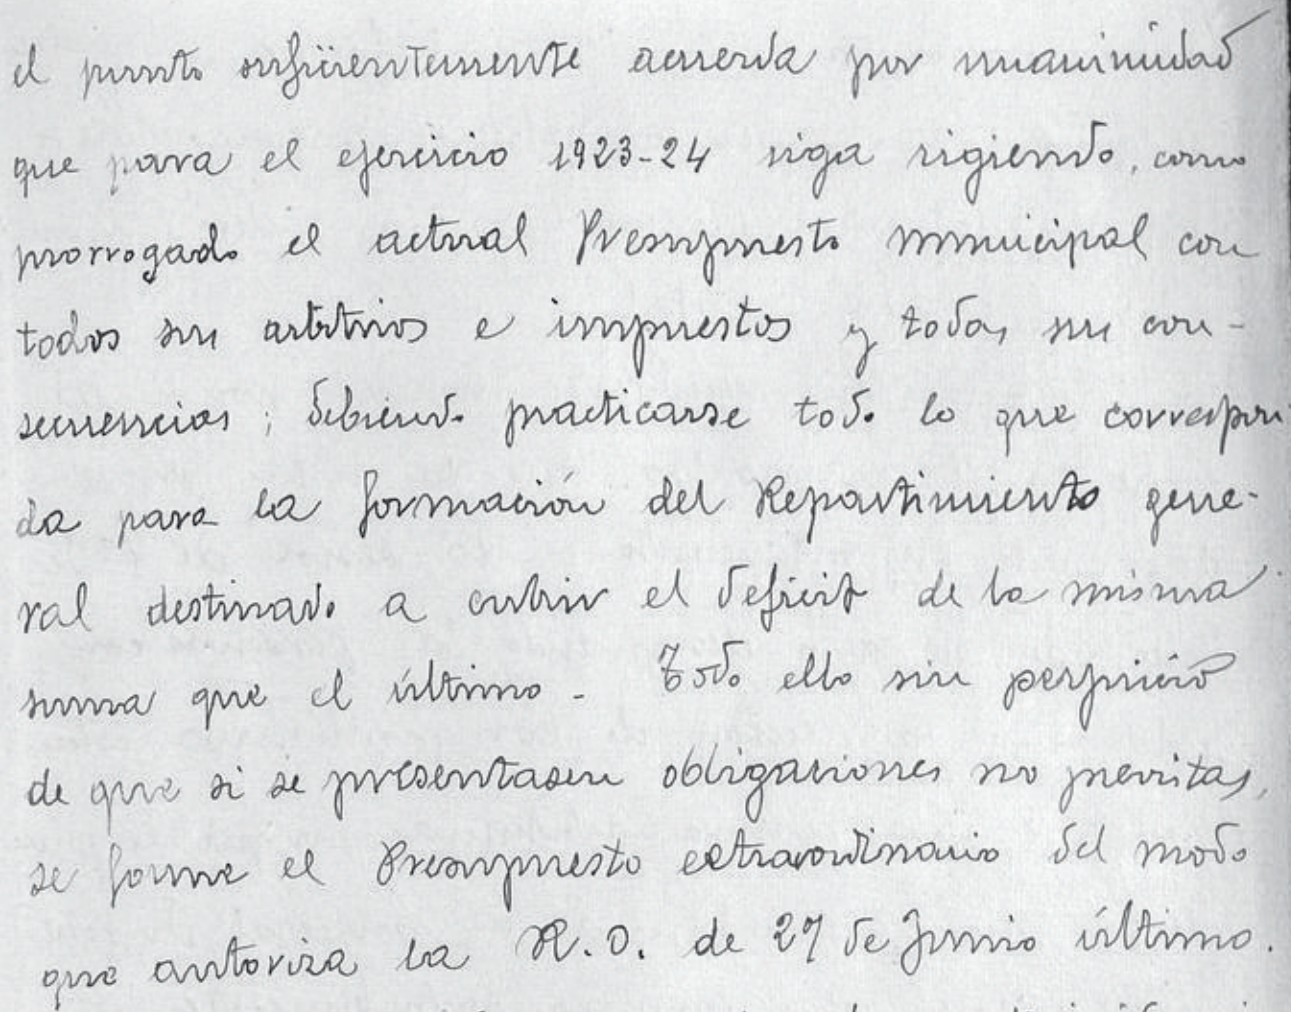 el punto suficientemente acuerda por unanimidad
que para el ejercicio 1923-24 siga rigiendo, como
prorrogado el actual Presupuesto municipal con
todos su arbitrios e impuestos y todas su con-
secuencias; debiendo practicarse todo lo que correspon
da para la formación del Repartimiento gene-
ral destinado a cubrir el deficit de la misma
suma que el último - Todo ello sin perjuicio
de que si se presentasen obligaciones no previstas,
se forme el Presupuesto extraordinario del modo
que autoriza la R.O. de 27 de Junio último.